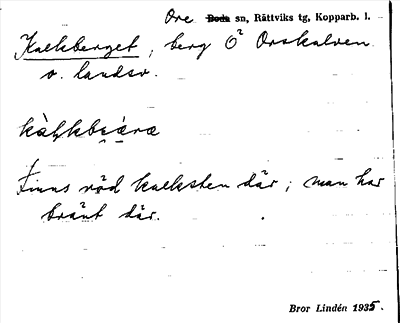 Ore Boda sn, Rättviks tg, Kopparb. l.
Kalkberget, berg Ö Orskalven
o. landsv.
kàl̥kbæ̀ræ
Finns röd kalksten där; man har
bränt där.
Bror Lindén 1935.